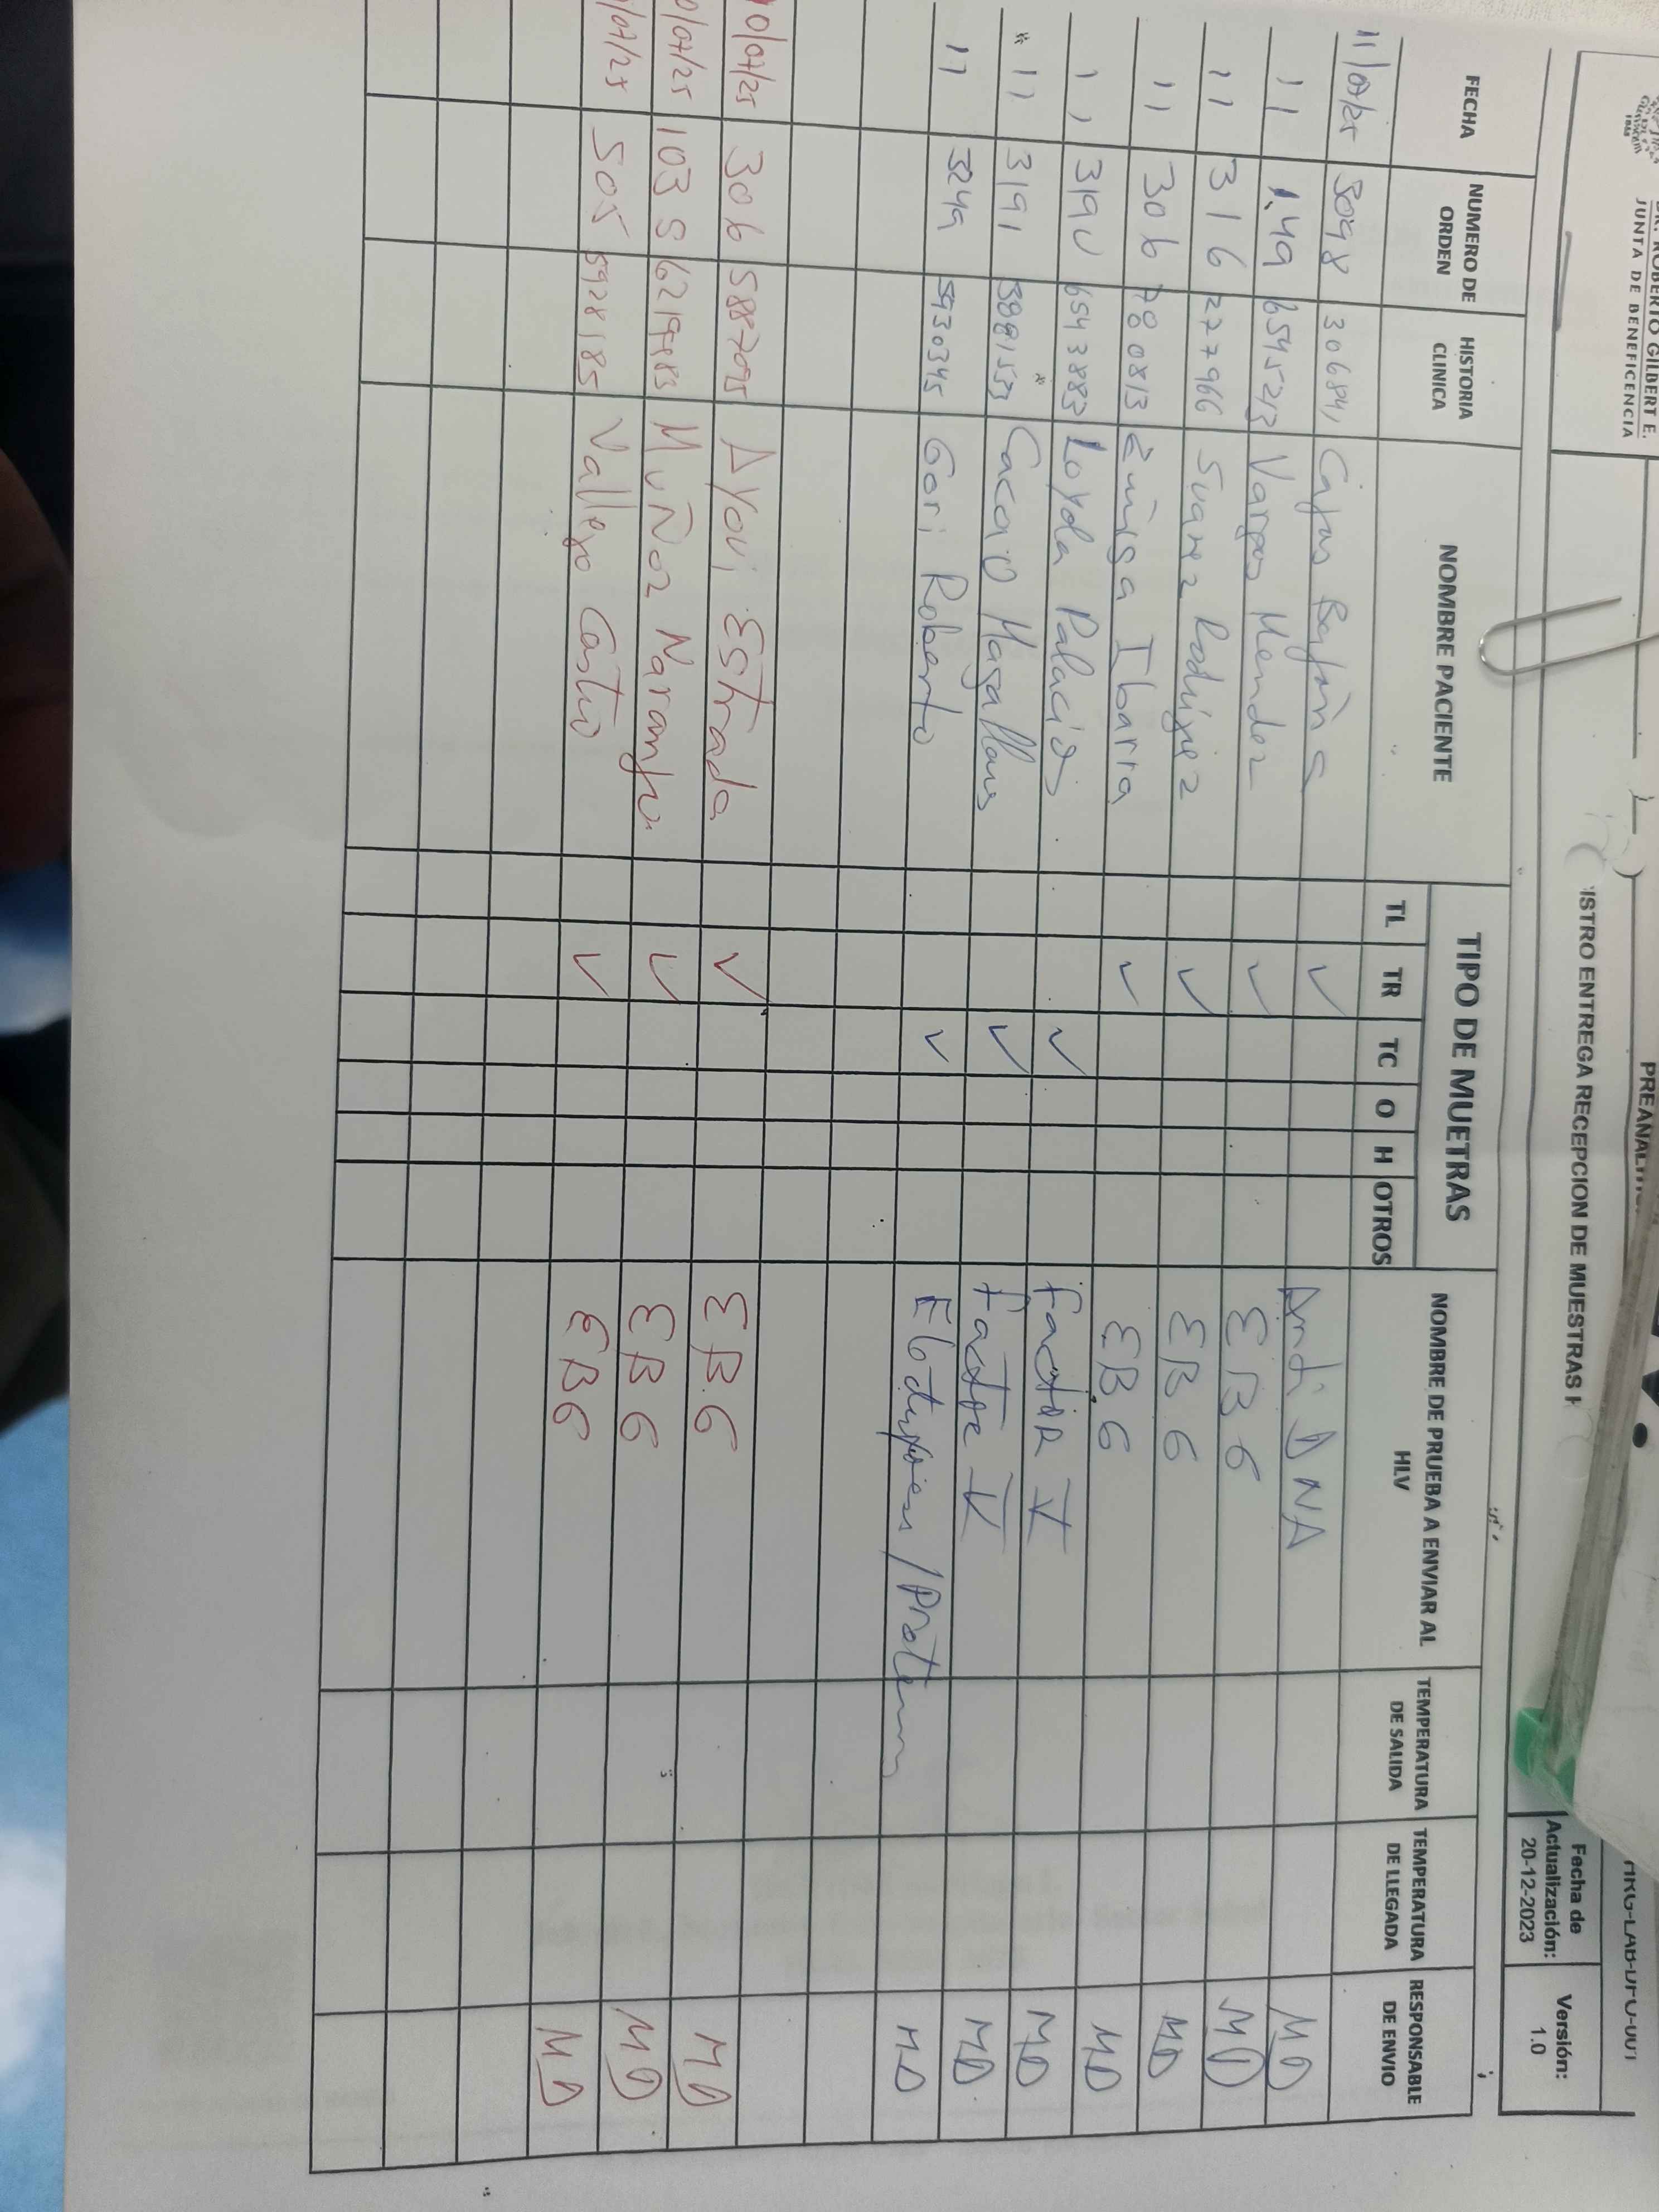 ROBERTO GILBERT E.
JUNTA DE BENEFICENCIA
PREANALITI
ISTRO ENTREGA RECEPCION DE MUESTRAS H
HRG-LAB-DFO-001
Fecha de Actualización: 20-12-2023
Versión: 1.0
FECHA NUMERO DE ORDEN HISTORIA CLINICA NOMBRE PACIENTE TIPO DE MUETRAS NOMBRE DE PRUEBA A ENVIAR AL HLV TEMPERATURA DE SALIDA TEMPERATURA DE LLEGADA RESPONSABLE DE ENVIO
TL TR TC O H OTROS
11/07/25 3098 ✓ Anti DNA MD
11 149 6545213 Vargas Mendoz ✓ EB6 MD
11 316 277966 Suarez Rodriguez ✓ EB6 MD
11 306 780813 Zuñiga Ibarra ✓ EB6 MD
11 3190 6543883 Loyola Palacios ✓ factor V MD
* 11 3191 Magallans ✓ factor V MD
11 3249 5930345 Gori Roberto ✓ MD
10/07/25 306 Ayovi Estrada ✓ EB6 MD
0/07/25 103 Muñoz Naranjo ✓ EB6 MD
/07/25 505 5928185 Vallejo Castro ✓ EB6 MD